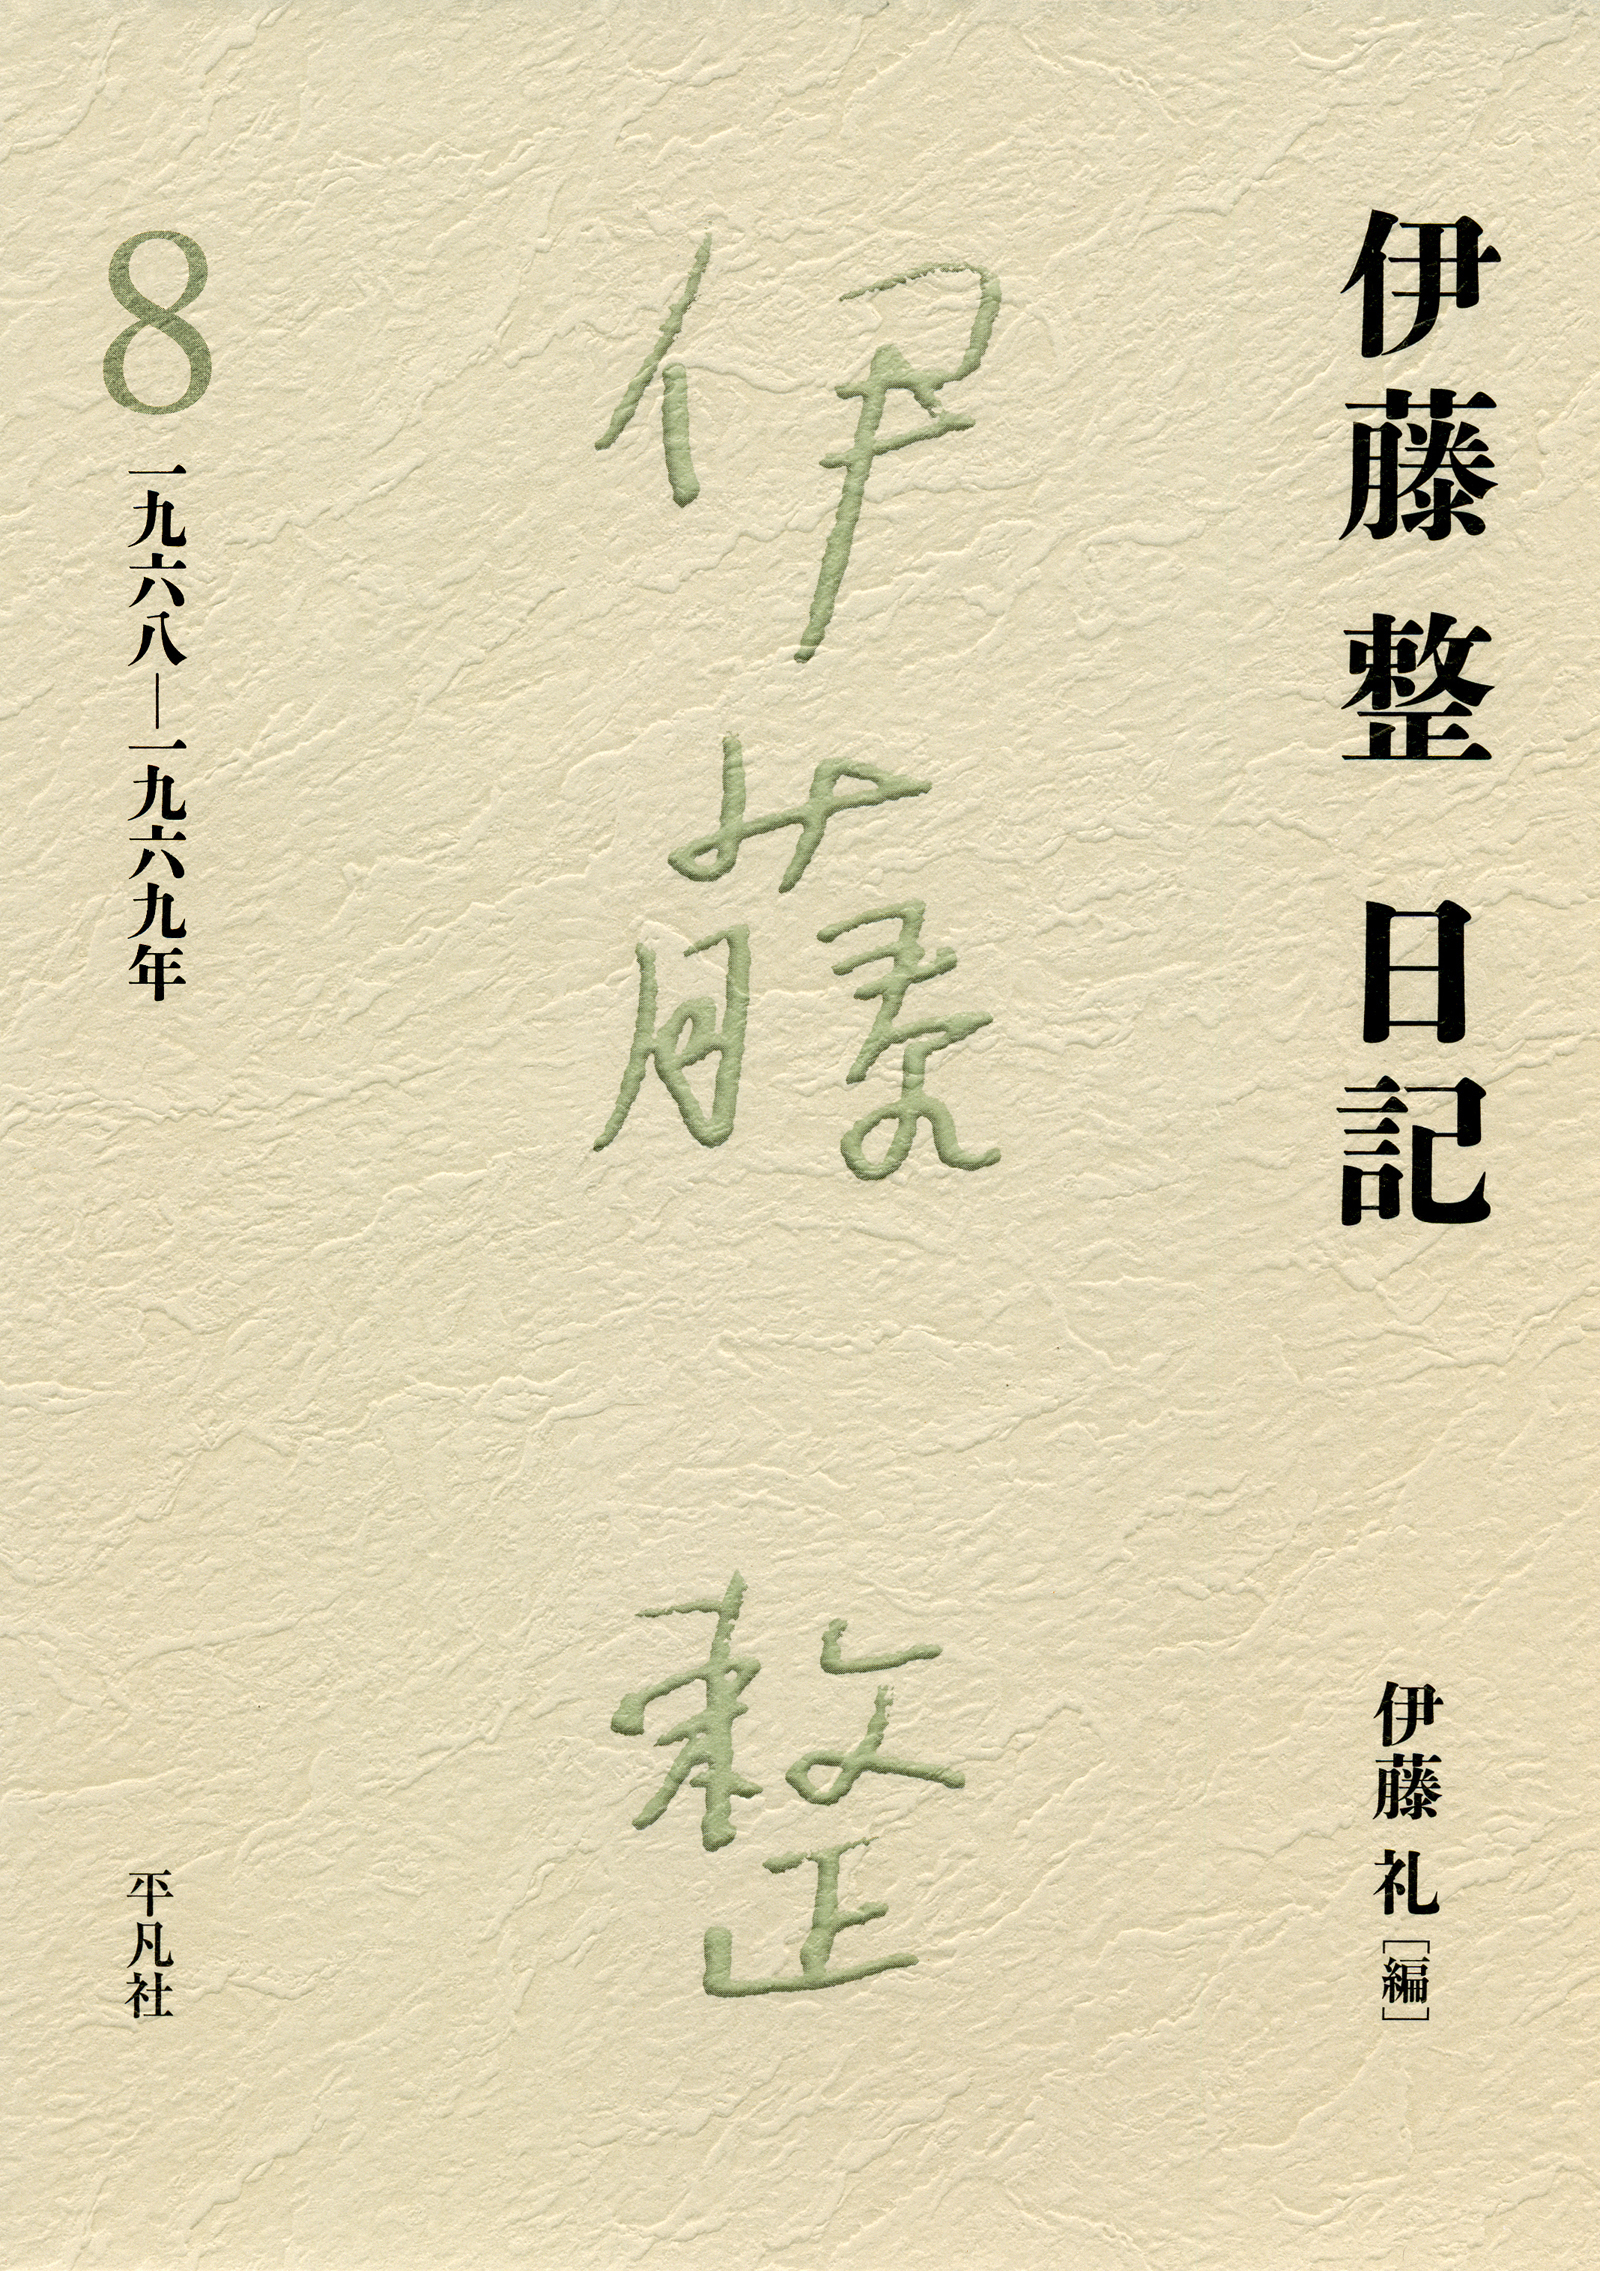 伊藤整 日記
伊藤 礼[編]
伊藤 整
8
一九六八―一九六九年
平凡社